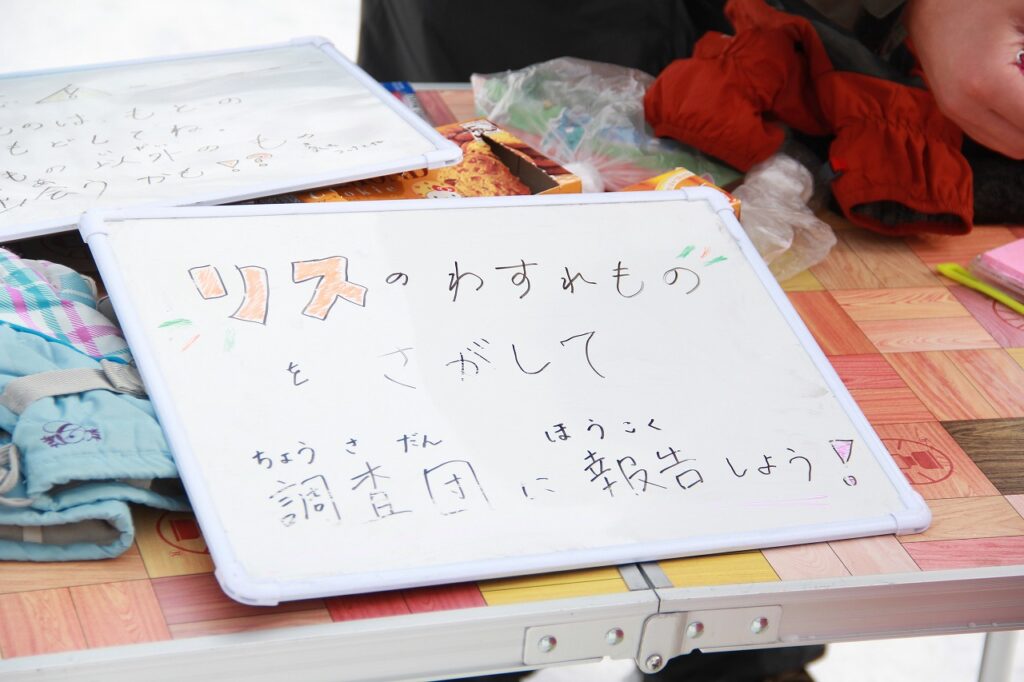 ものは もとの
もどしてね.
もの以外のもの
会うかも!?
リスのわすれもの
を さがして
ちょうさだん ほうこく
調査団に報告しよう!